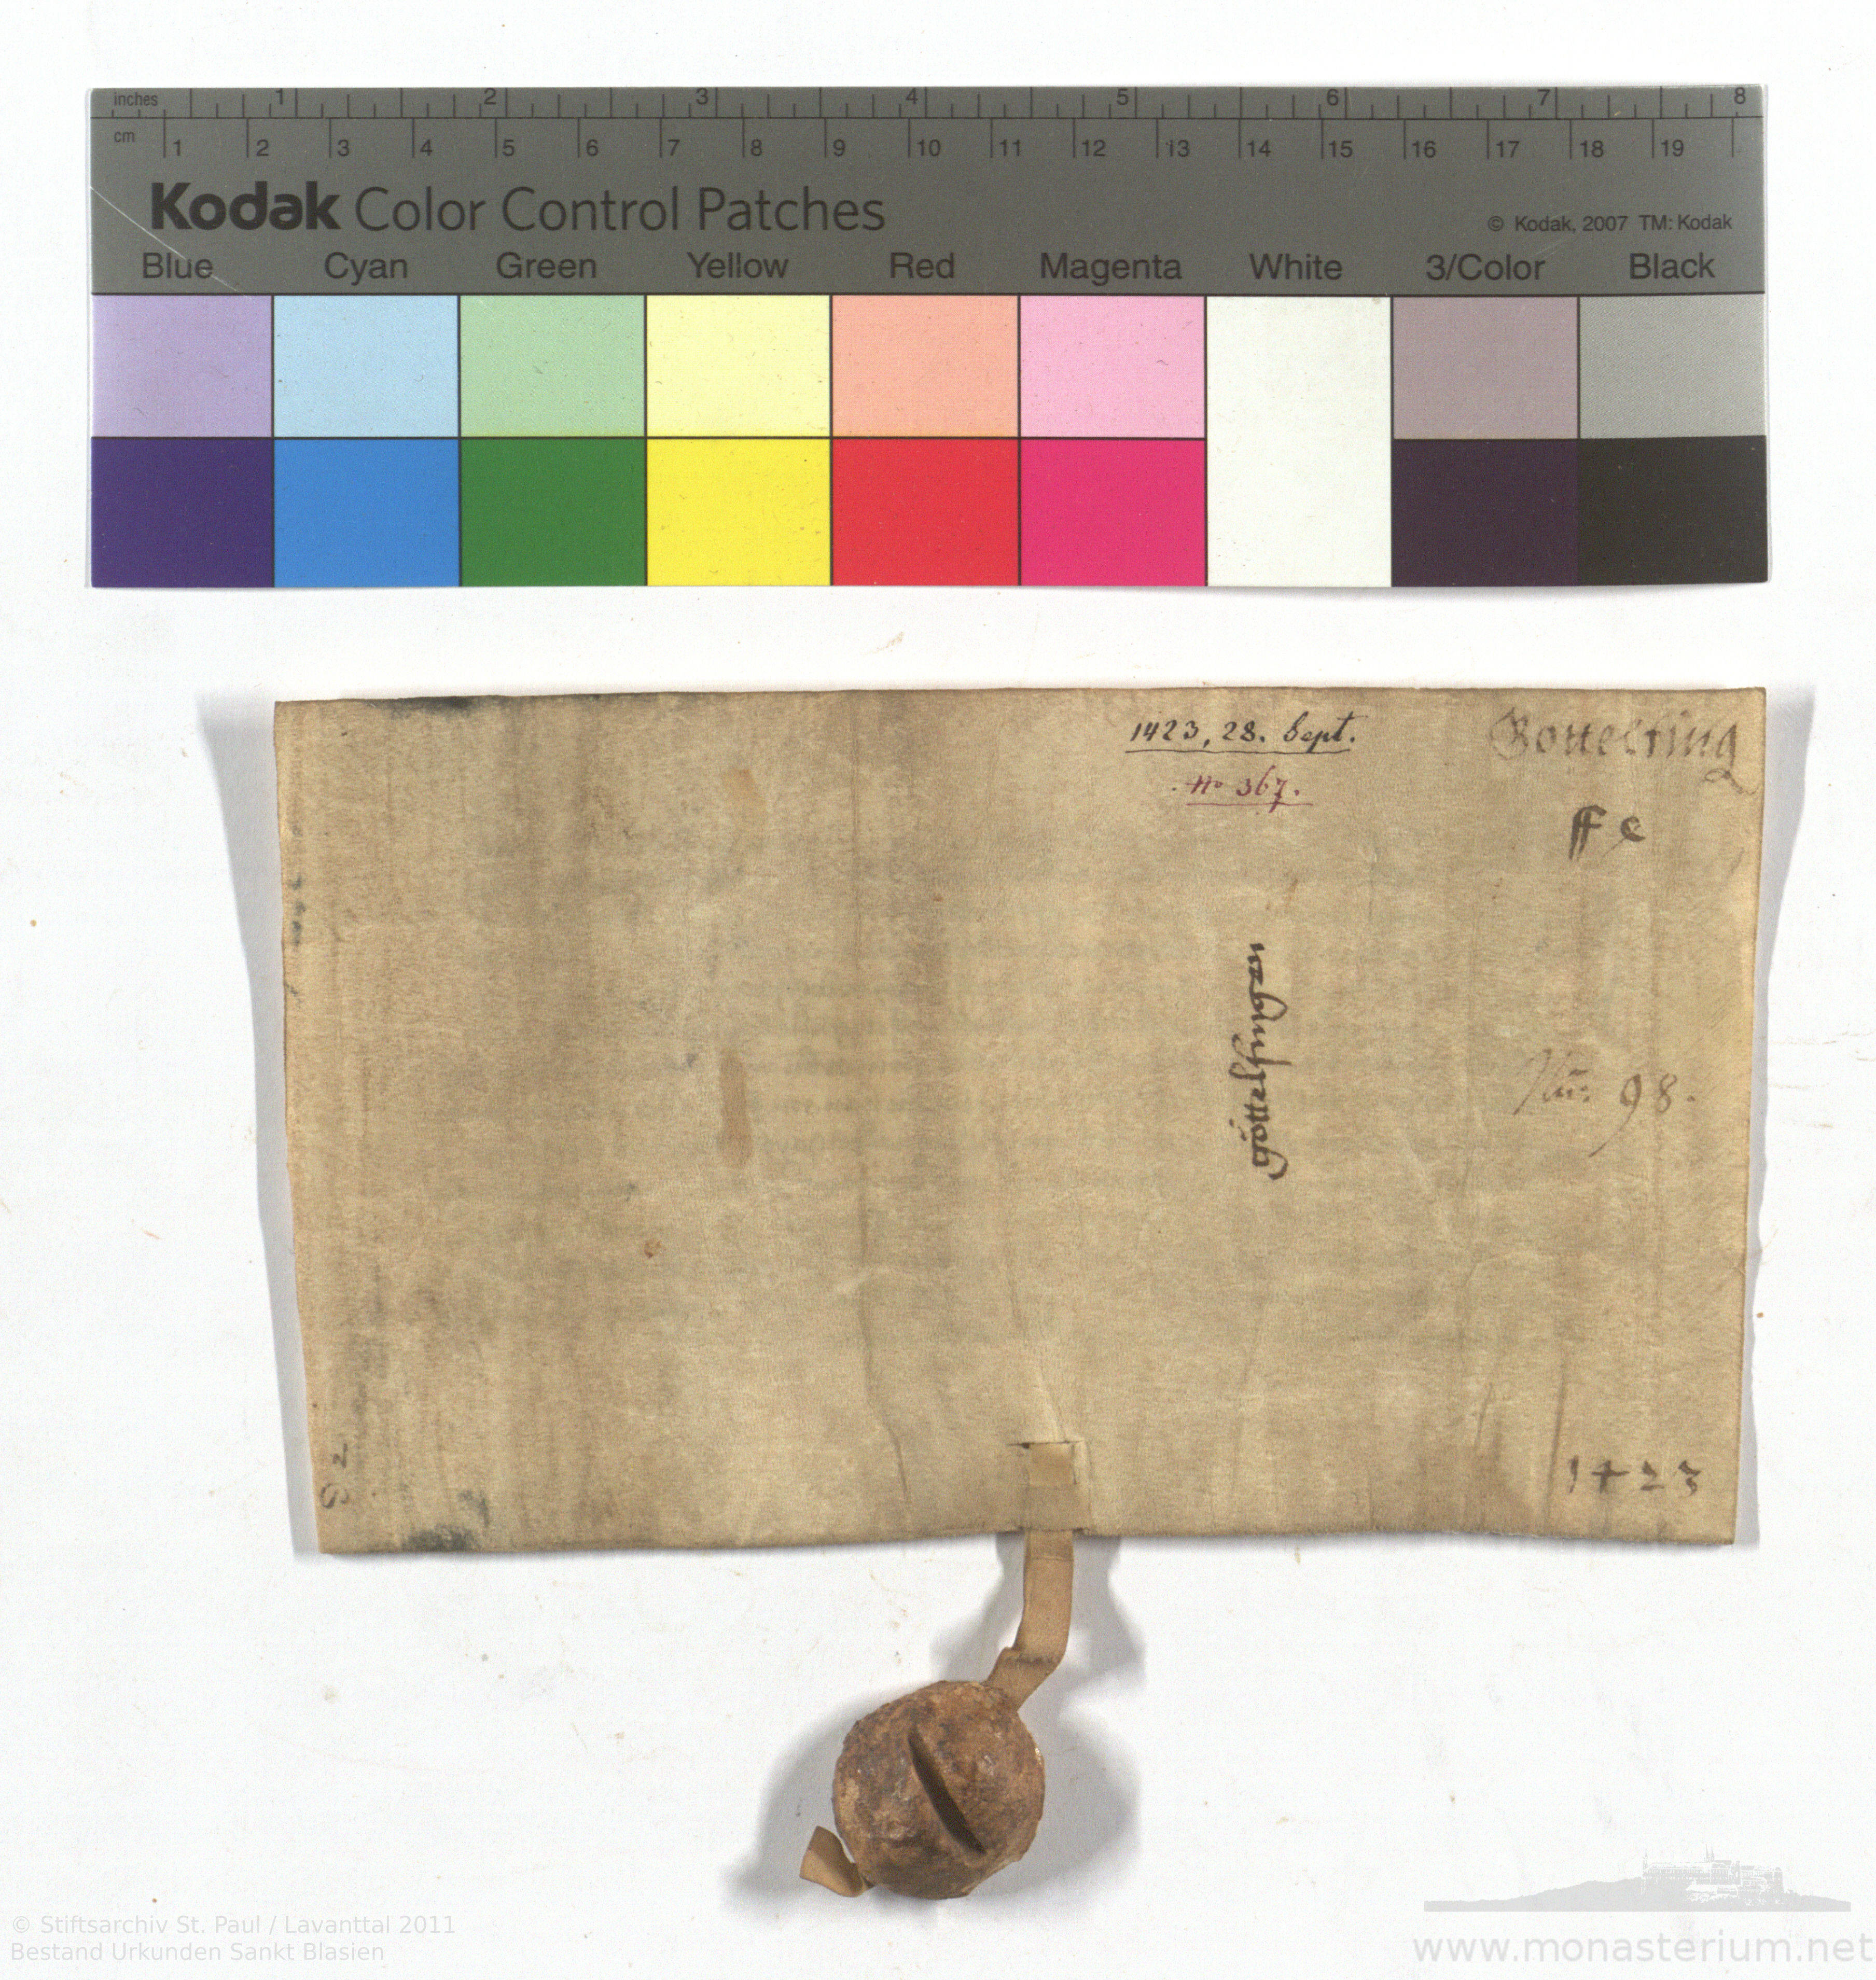 inches 1 2 3 4 5 6 7 8
cm 1 2 3 4 5 6 7 8 9 10 11 12 13 14 15 16 17 18 19
Kodak Color Control Patches
© Kodak, 2007 TM: Kodak
Blue Cyan Green Yellow Red Magenta White 3/Color Black
1423, 28. Sept.
No 367.
ff e
98.
1423
© Stiftsarchiv St. Paul / Lavanttal 2011
Bestand Urkunden Sankt Blasien
www.monasterium.net